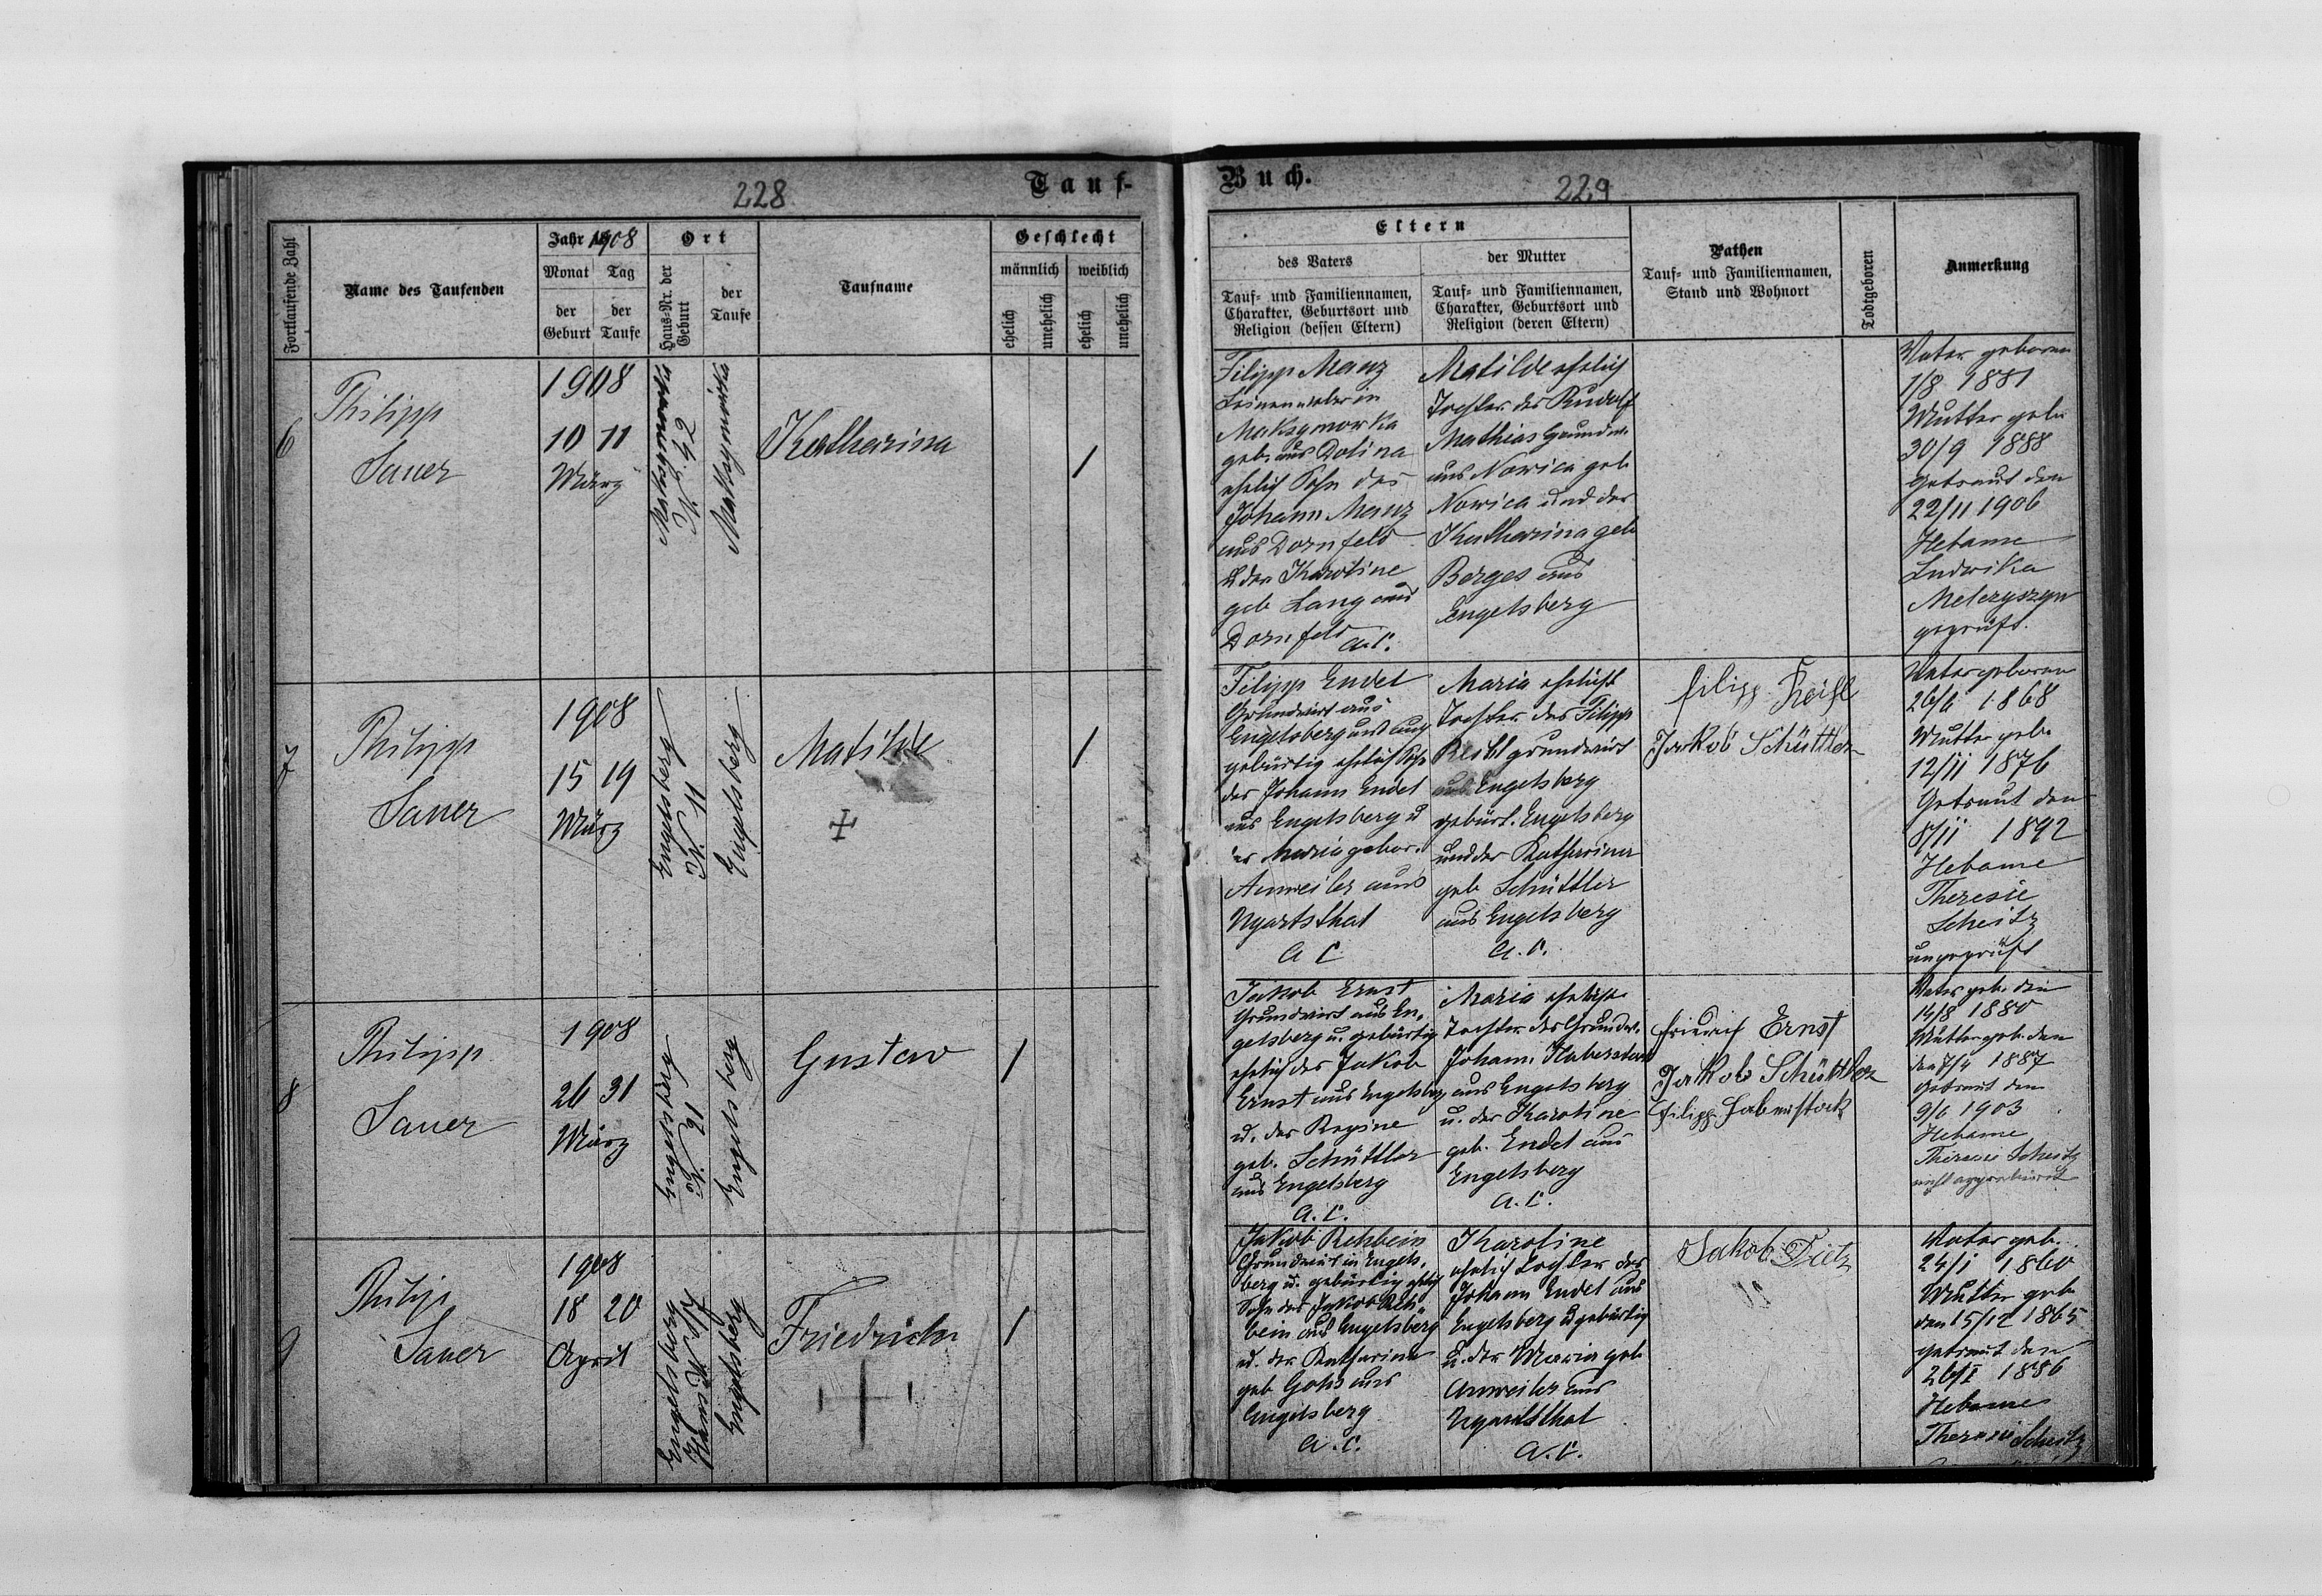 228
Tauf-
Fortlaufende Zahl
Name des Taufenden
Jahr 1908
Monat
Tag
der Geburt
der Taufe
Ort
Haus-Nr. der Geburt
der Taufe
Taufname
Geschlecht
männlich
weiblich
ehelich
unehelich
ehelich
unehelich
6
Philipp
Sauer
1908
10 11
März
Maksymowka
Nr.
Maksymowka
Katharina
/
7
Philipp
Sauer
1908
15 19
März
Engelsberg
N. 11
Engelsberg
Matilde
/
8
Philipp
Sauer
1908
26 31
März
Engelsberg
Engelsberg
Gustav
/
9
Philip
Sauer
1908
18 20
April
Engelsberg
Haus N 17
Engelsberg
Friedrich
/
Buch.
229
Eltern
des Vaters
Tauf- und Familiennamen,
Charakter, Geburtsort und
Religion (dessen Eltern)
der Mutter
Tauf- und Familiennamen,
Charakter, Geburtsort und
Religion (deren Eltern)
Pathen
Tauf- und Familiennamen,
Stand und Wohnort
Todtgeboren
Anmerkung
Filipp Manz
Leinenweber in
Maksymowka
geb. aus Dolina
ehelich Sohn des
Johann Manz
aus Dornfeld
u der Karoline
geb Lang aus
Dornfeld
A.C.
Matilde ehelich
Tochter des Rudolf
Mathias Grundw.
aus Nowica geb
Nowica und der
Katharina geb
Borges aus
Engelsberg
Vater geboren
1/8 1881
Mutter geb.
30/9 1888
Getraut den
22/11 1906
Hebame
Ludwika
geprüft.
Filipp Endel
Grundwirt aus
Engelsberg und auch
gebürtig ehelich Sohn
des Johann Endel
aus Engelsberg u
der Maria gebor.
Anweiler aus
Ugartsthal
A C
Maria ehelich
Tochter des Filipp
Reibl grundwirt
aus Engelsberg
gebürt. Engelsberg
und der Katharina
geb Schüttler
aus Engelsberg
A.C.
Filipp
Jakob Schüttler
Vater geboren
26/6 1868
Mutter geb.
12/11 1876
Getraut den
8/11 1892
Hebame
Theresie
Scheitz
ungeprüft
Jakob Ernst
Grundwirt aus En-
gelsberg u. gebürtig
ehelich des Jakob
Ernst aus Engelsberg
u. der Regine
geb. Schüttler
aus Engelsberg
A.C.
Maria ehelich
Tochter des Grundw.
Johann Haberstock
aus Engelsberg
u. der Karoline
geb. Endel aus
Engelsberg
A.C.
Friedrich Ernst
Jakob Schüttler
Filipp Haberstock
Vater geb. den
14/8 1880
Mutter geb. den
1887
Getraut den
9/6 1903
Hebame
Theresie Scheitz
nicht approbiert
Jakob Rehbein
Grundwirt in Engels-
berg u. gebürtig ehelich
Sohn des Jakob Reh-
bein aus Engelsberg
u. der Katharina
geb
aus
Engelsberg
A.C.
Karoline
ehelich Tochter des
Johann Endel aus
Engelsberg u gebürtig
u. der Maria geb
Anweiler aus
Ugartsthal
A.C.
Jakob Dietz
Vater geb.
24/1 1860
Mutter geb
den 15/12 1865
getraut den
1886
Hebame
Theresie Scheitz